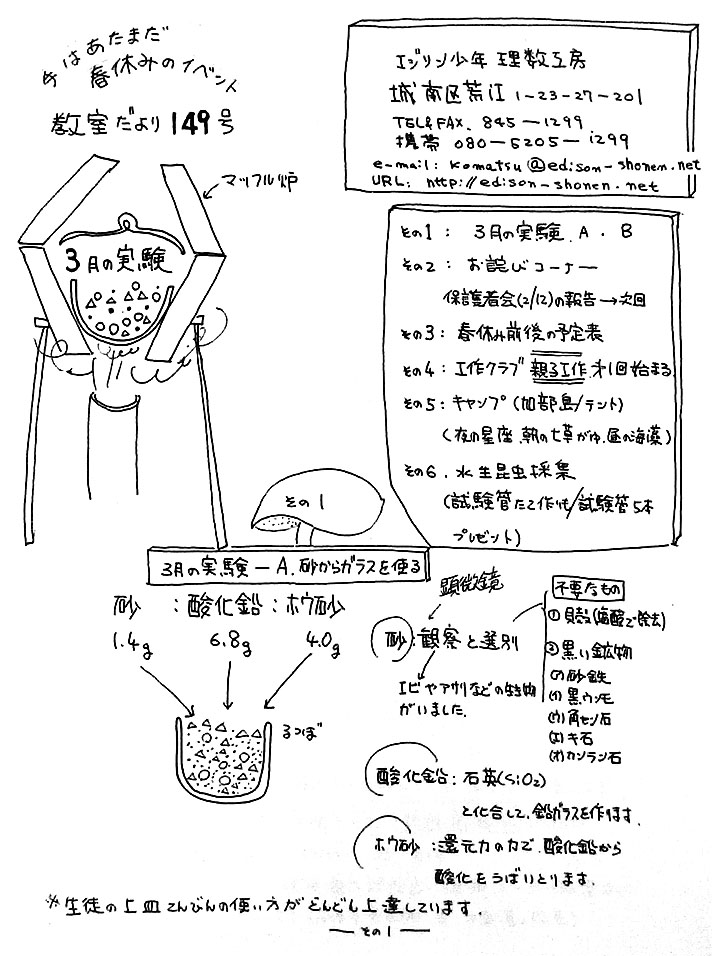 今はあたまだ
春休みのイベント
教室だより149号
エジソン少年 理数工房
城南区荒江 1-23-27-201
TEL&FAX. 845-1299
携帯 080-5205-1299
e-mail: komatsu@edison-shonen.net
URL: http://edison-shonen.net
マッフル炉
3月の実験
その1: 3月の実験 A・B
その2: お詫びコーナー
保護者会(2/12)の報告→次回
その3: 春休み前後の予定表
その4: 工作クラブ 親子工作 オ1回始まる
その5: キャンプ(加部島/テント)
(夜の星座、朝の七草がゆ、昼の海藻)
その6. 水生昆虫採集
(試験管たて作りも/試験管5本
プレゼント)
その1
3月の実験-A. 砂からガラスを使る
砂 : 酸化鉛 : ホウ砂
1.4g 6.8g 4.0g
るつぼ
顕微鏡
砂:観察と選別
エビやアサリなどの生き物
がいました.
不要なもの
①貝殻(塩酸で除去)
②黒い鉱物
(ア)砂鉄
(イ)黒ウンモ
(ウ)角セン石
(エ)キ石
(オ)カンラン石
酸化鉛: 石英(SiO2)
と化合して、鉛ガラスを作ります.
ホウ砂:還元力の力で、酸化鉛から
酸化をうばいとります.
※生徒の上皿てんびんの使い方がどんどん上達しています.
— その1 —